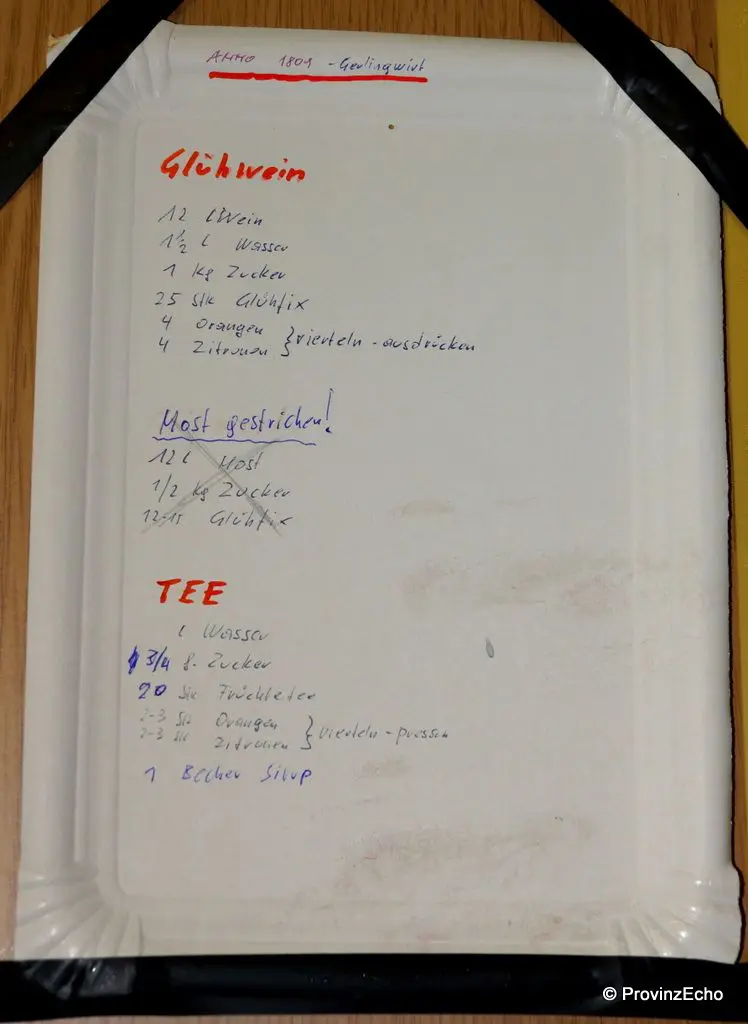 ANNO 1801 - Gerlingwirt
Glühwein
12 l Wein
1 1/2 l Wasser
1 kg Zucker
25 Stk Glühfix
4 Orangen
4 Zitronen } vierteln - ausdrücken
Most gestrichen!
12 l Most
1/2 kg Zucker
12-15 Glühfix
TEE
l Wasser
3/4 Zucker
20 Stk Früchtetee
2-3 Stk Orangen
2-3 Stk Zitronen } vierteln - pressen
1 Becher Sirup
© ProvinzEcho